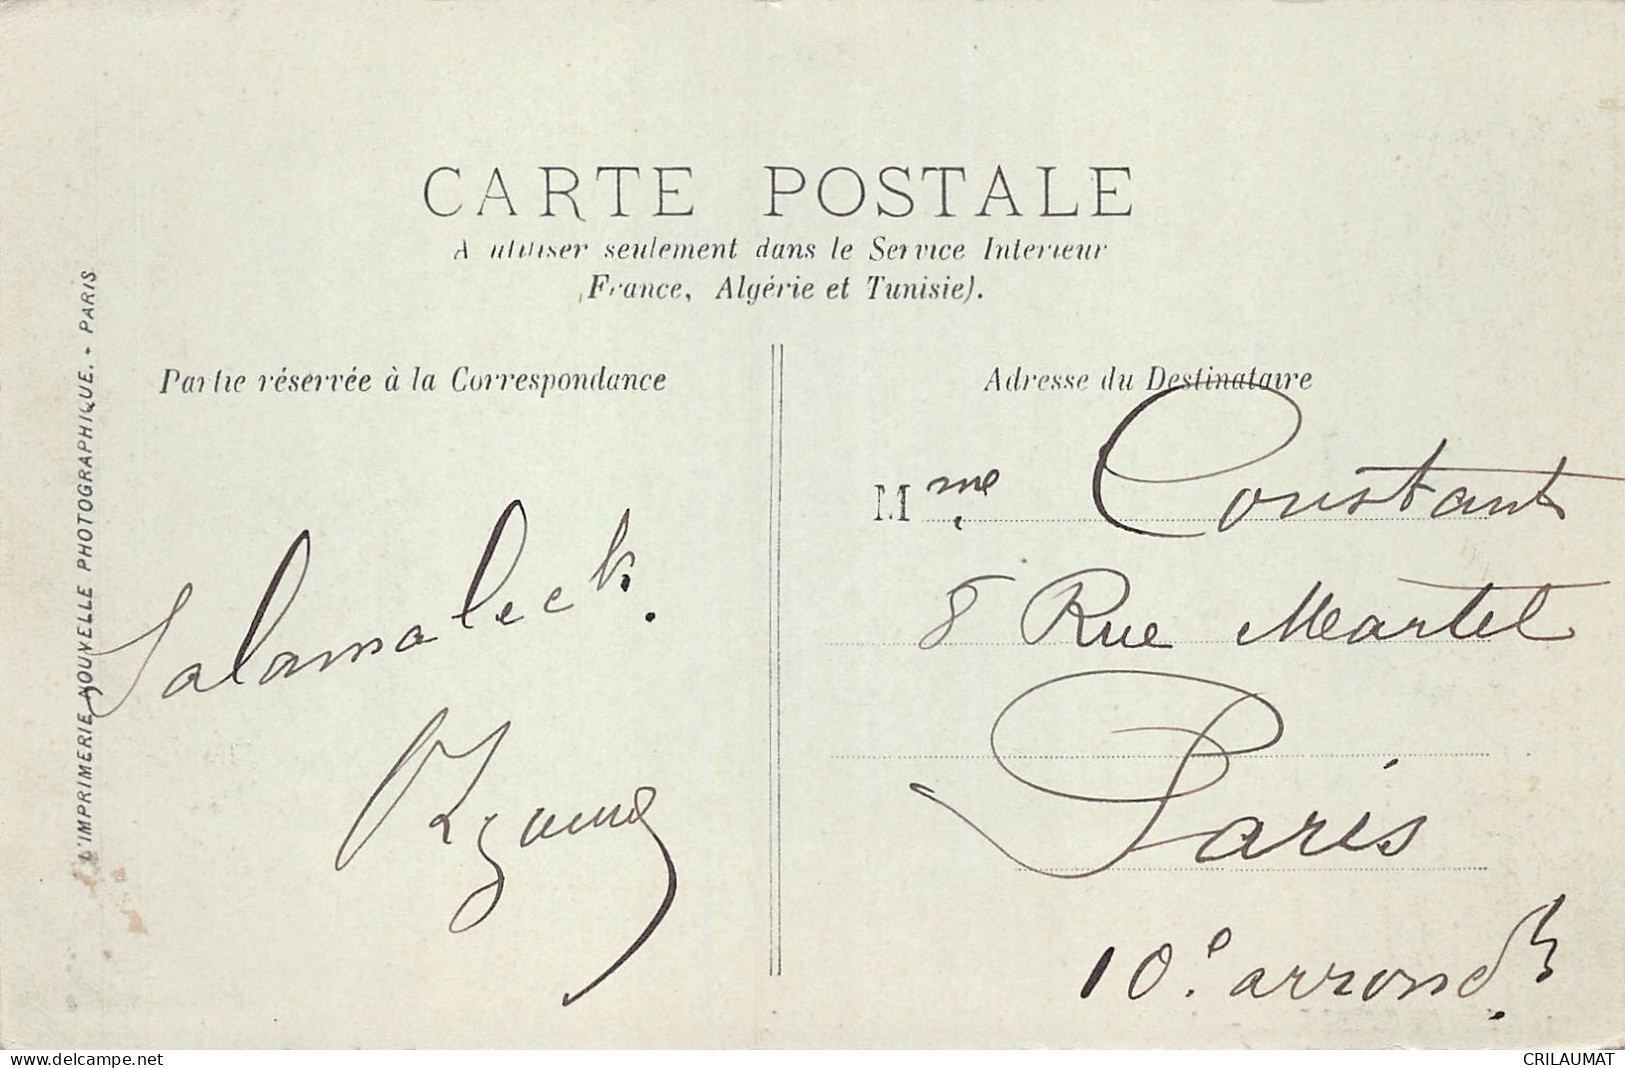 CARTE POSTALE
A utiliser seulement dans le Service Intérieur
(France, Algérie et Tunisie).
Partie réservée à la Correspondance
Adresse du Destinataire
L'IMPRIMERIE NOUVELLE PHOTOGRAPHIQUE. - PARIS
Salamaleck.
Mme. Constant
8 Rue Martel
Paris
10e. arrondt.
www.delcampe.net
CRILAUMAT